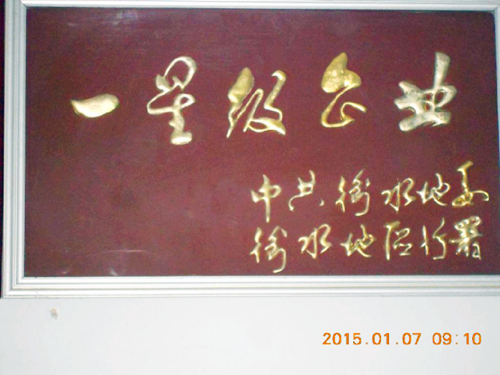 一星级企业
中共衡水地委
衡水地区行署
2015.01.07 09:10